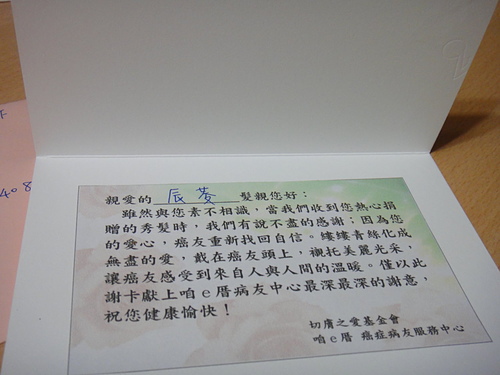 親愛的 辰菱 髮親您好：
雖然與您素不相識，當我們收到您熱心捐
贈的秀髮時，我們有說不盡的感謝；因為您
的愛心，癌友重新找回自信。縷縷青絲化成
無盡的愛，戴在癌友頭上，襯托美麗光采，
讓癌友感受到來自人與人間的溫暖。僅以此
謝卡獻上咱e厝病友中心最深最深的謝意，
祝您健康愉快！
切膚之愛基金會
咱e厝 癌症病友服務中心
408